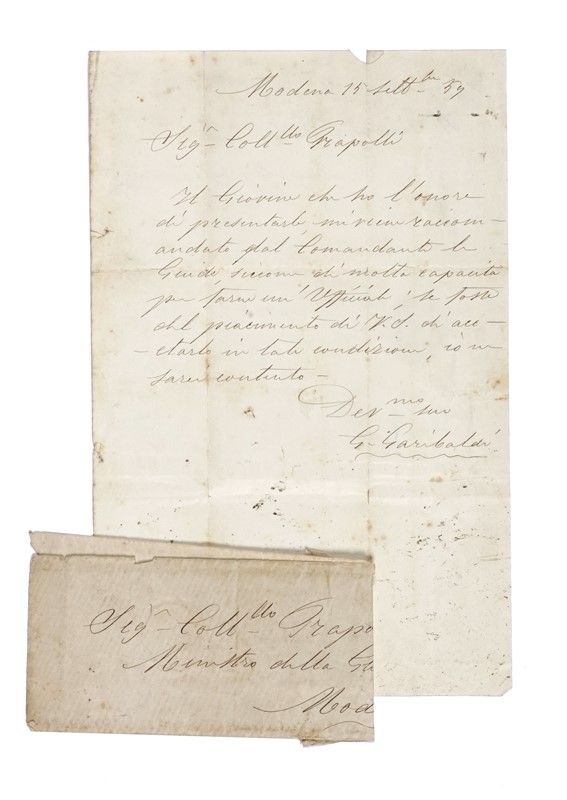 Modena 15 sett.bre 59
Sigr. Coll.llo Frapolli
Il Giovine che ho l'onore
di presentarle mi vien raccom-
andato dal Comandante le
Guide, siccome di molta capacità
per farne un' Ufficiale; se fosse
del piacimento di V. S. di acc-
-ettarlo in tale condizione, io ne
sarei contento -
Dev.mo suo
G. Garibaldi
Sigr. Coll.llo Frapo
Ministro della Gu
Mod